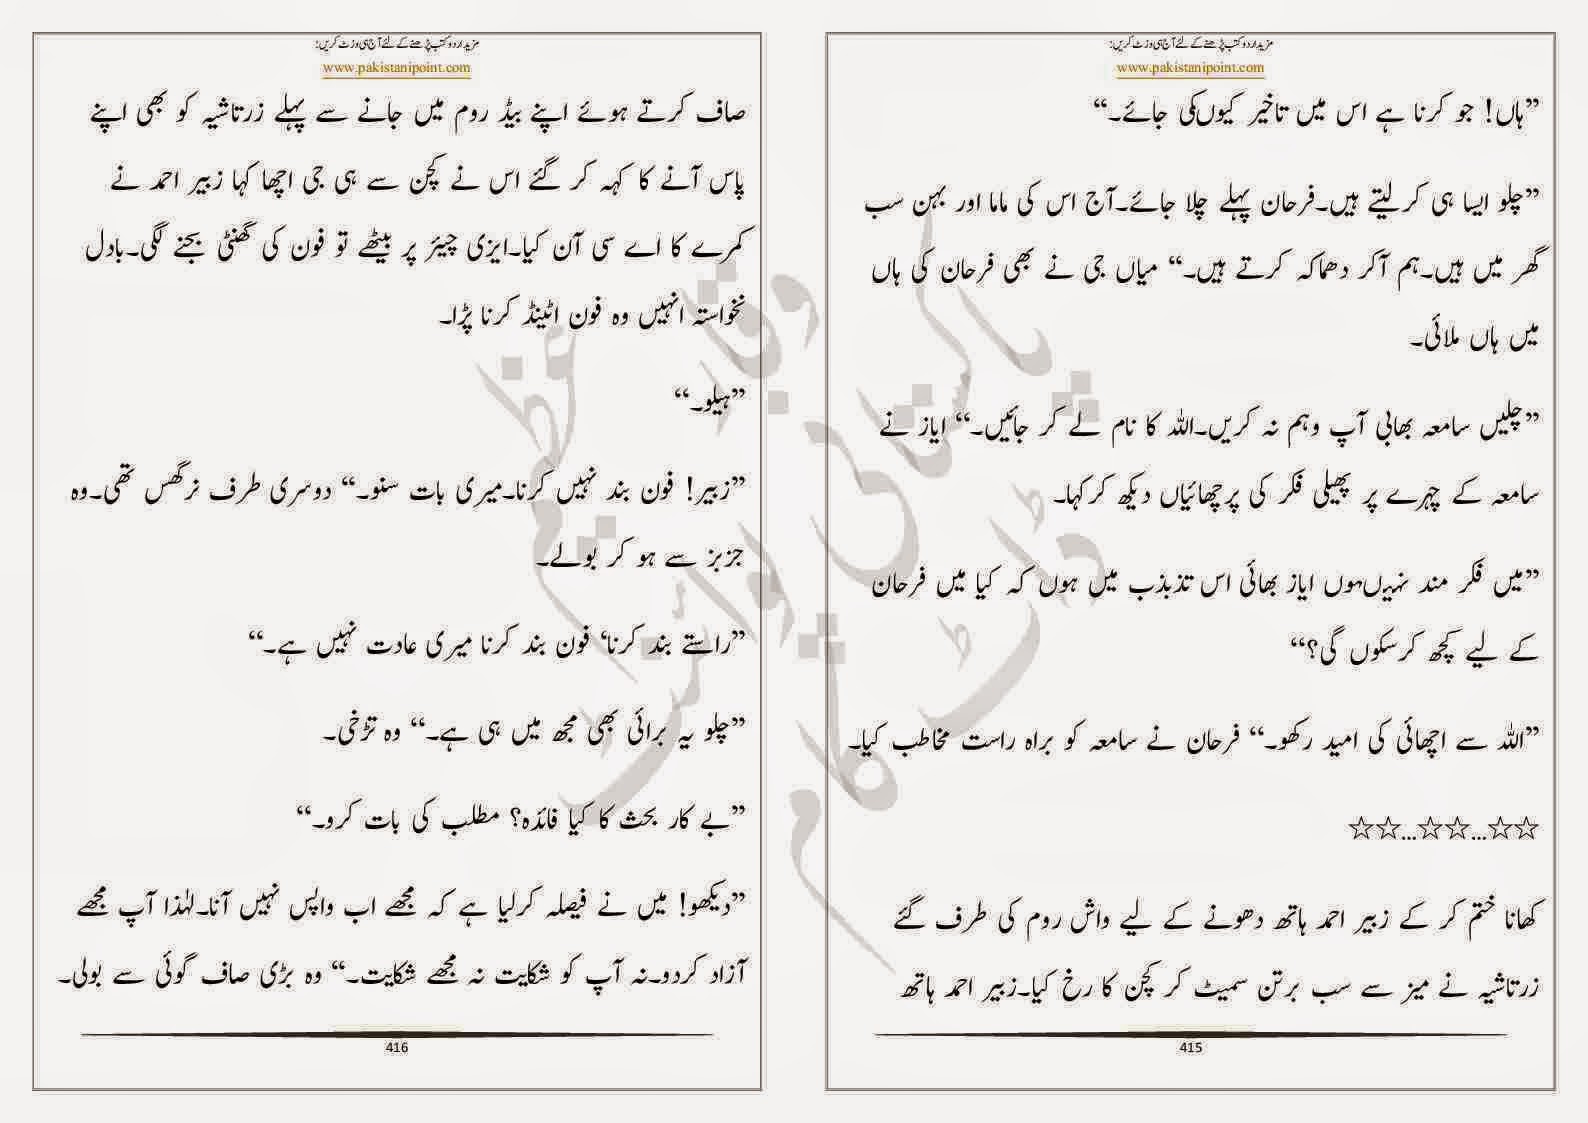 مزید اردو کتب پڑھنے کے لئے آج ہی وزٹ کریں:
www.pakistanipoint.com
”ہاں! جو کرنا ہے اس میں تاخیر کیوں کی جائے۔“
”چلو ایسا ہی کر لیتے ہیں۔فرحان پہلے چلا جائے۔آج اس کی ماما اور بہن سب
گھر میں ہیں۔ہم آکر دھماکہ کرتے ہیں۔“ میاں جی نے بھی فرحان کی ہاں
میں ہاں ملائی۔
”چلیں سامعہ بھابی آپ وہم نہ کریں۔اللہ کا نام لے کر جائیں۔“ ایاز نے
سامعہ کے چہرے پر پھیلی فکر کی پرچھائیاں دیکھ کر کہا۔
”میں فکر مند نہیں ہوں ایاز بھائی اس تذبذب میں ہوں کہ کیا میں فرحان
کے لیے کچھ کرسکوں گی؟“
”اللہ سے اچھائی کی امید رکھو۔“ فرحان نے سامعہ کو براہ راست مخاطب کیا۔
☆☆...☆☆...☆☆
کھانا ختم کر کے زبیر احمد ہاتھ دھونے کے لیے واش روم کی طرف گئے
زرتاشیہ نے میز سے سب برتن سمیٹ کر کچن کا رخ کیا۔زبیر احمد ہاتھ
415
مزید اردو کتب پڑھنے کے لئے آج ہی وزٹ کریں:
www.pakistanipoint.com
صاف کرتے ہوئے اپنے بیڈ روم میں جانے سے پہلے زرتاشیہ کو بھی اپنے
پاس آنے کا کہہ کر گئے اس نے کچن سے ہی جی اچھا کہا زبیر احمد نے
کمرے کا اے سی آن کیا۔ایزی چیئر پر بیٹھے تو فون کی گھنٹی بجنے لگی۔بادل
نخواستہ انہیں وہ فون اٹینڈ کرنا پڑا۔
”ہیلو۔“
”زبیر! فون بند نہیں کرنا۔میری بات سنو۔“ دوسری طرف نرگھس تھی۔وہ
جزبز سے ہو کر بولے۔
”راستے بند کرنا‘ فون بند کرنا میری عادت نہیں ہے۔“
”چلو یہ برائی بھی مجھ میں ہی ہے۔“ وہ تڑخی۔
”بے کار بحث کا کیا فائدہ؟ مطلب کی بات کرو۔“
”دیکھو! میں نے فیصلہ کرلیا ہے کہ مجھے اب واپس نہیں آنا۔لہٰذا آپ مجھے
آزاد کردو۔نہ آپ کو شکایت نہ مجھے شکایت۔“ وہ بڑی صاف گوئی سے بولی۔
416
پاکستانی پوائنٹ ڈاٹ کام